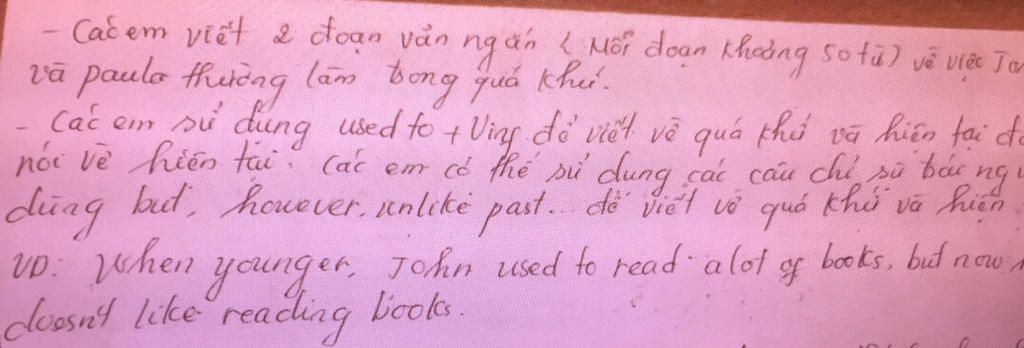 - Các em viết 2 đoạn văn ngắn (Mỗi đoạn khoảng 50 từ) về việc
và paulo thường làm trong quá khứ.
- Các em sử dụng used to + Ving để viết về quá khứ và hiện tại
nói về hiện tại. Các em có thể sử dụng các câu chỉ sử
dùng but, however, unlike past... để viết về quá khứ và hiện
VD: When younger, John used to read a lot of books, but now
doesn't like reading books.